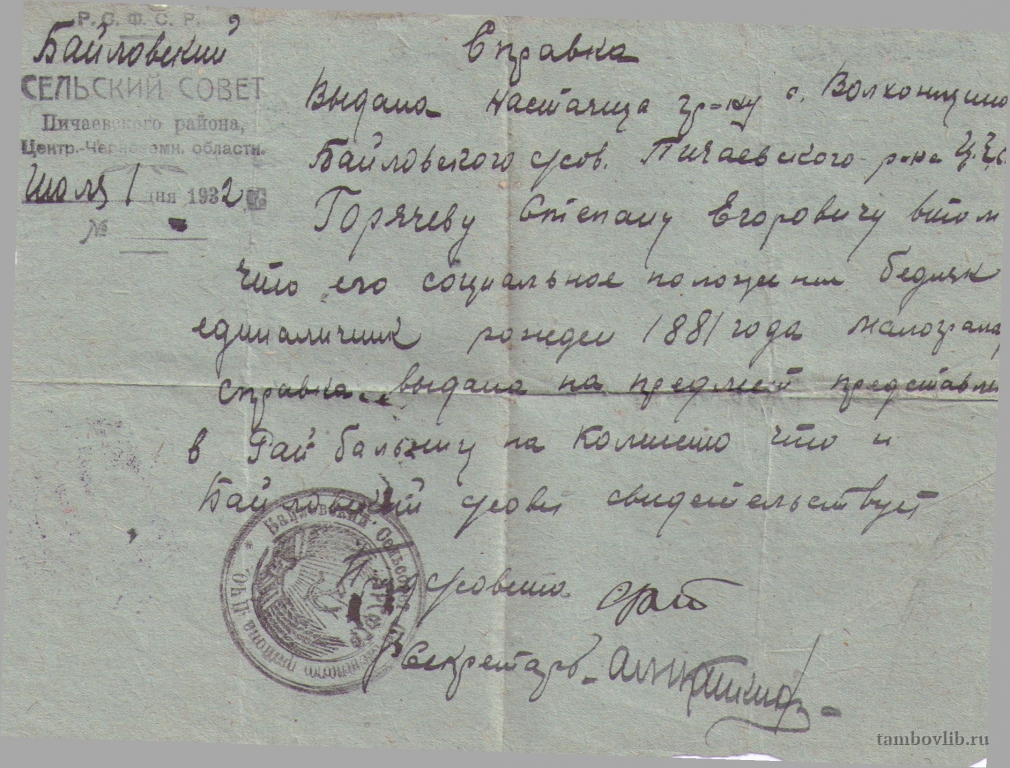 Р. С. Ф. С. Р.
Байловский
СЕЛЬСКИЙ СОВЕТ
Пичаевского района,
Центр.-Черноземн. области.
Июля 1 дня 1932
№
Справка
Выдана настаяща гр-ну с. Волхонщино
Байловского с/сов. Пичаевского р-на Ц.Ч.
Горячеву Степану Егоровичу втом
что его социальное положение бедняк
единаличник рожден 1881 года малограм
справка выдана на предмет представлен
в Рай больницу на что и
Байловский с/совет свидетельствует
Пр. с/совета
Секретарь
Байловский Сельсовет
района ЦЧО
РСФСР
tambovlib.ru